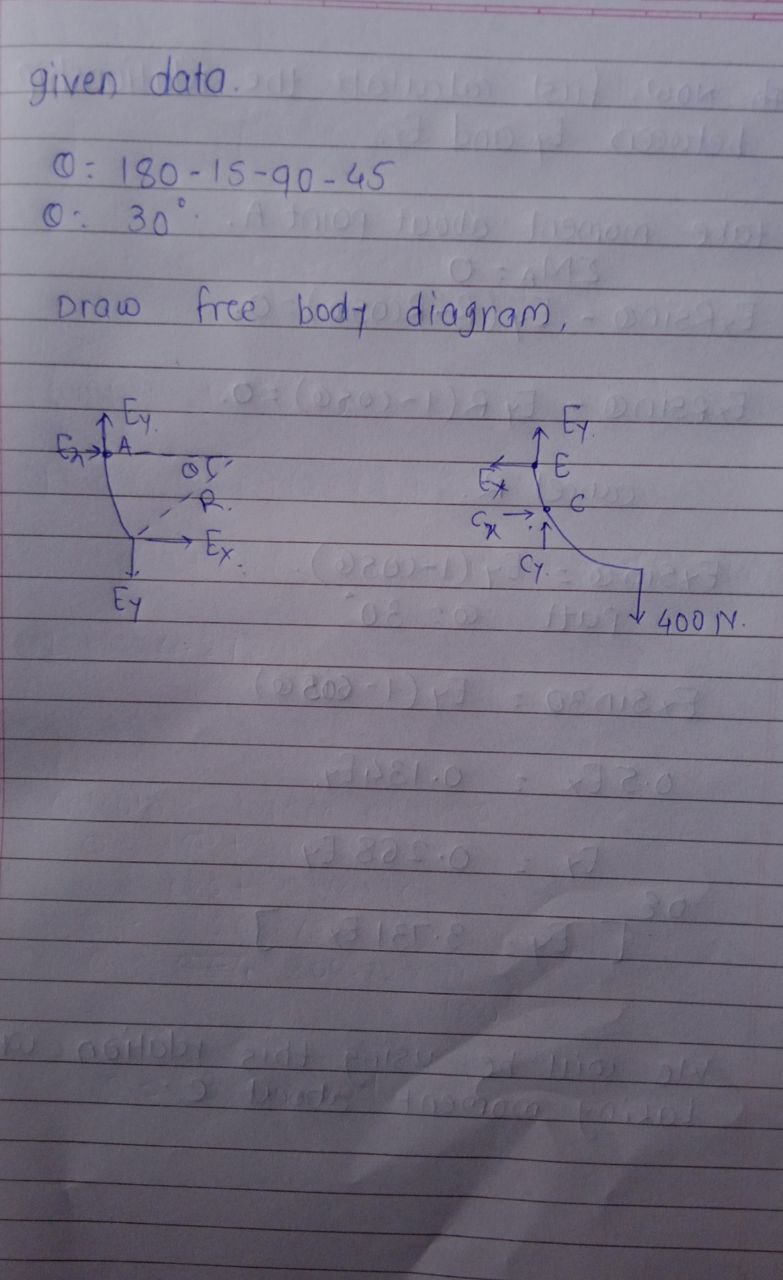 given data.
θ: 180-15-90-45
θ: 30°.
Draw free body diagram.
Ey.
Ex
A
θ
R.
Ex.
Ey
Ey.
Ex
E
Cx
C
Cy.
400 N.